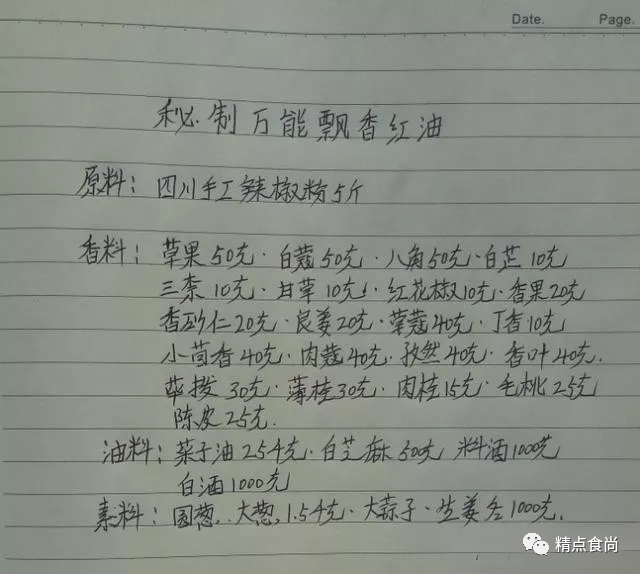 Date.
Page.
秘制万能飘香红油
原料：四川手工辣椒粉5斤
香料：草果50克·白蔻50克·八角50克·白芷10克
三柰10克·甘草10克·红花椒10克·香果20克
香砂仁20克·良姜20克·草蔻40克·丁香10克
小茴香40克·肉蔻40克·孜然40克·香叶40克.
荜拨30克·薄桂30克·肉桂15克·毛桃25克
陈皮25克.
油料：菜子油25千克·白芝麻500克 料酒1000克
白酒1000克
素料：圆葱,大葱,1.5千克·大蒜子·生姜各1000克.
精点食尚